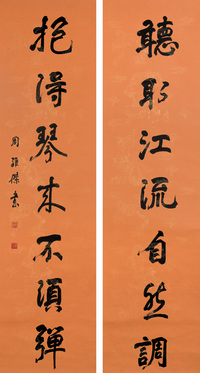 聽取江流自然調
抱得琴來不須彈
周維傑書